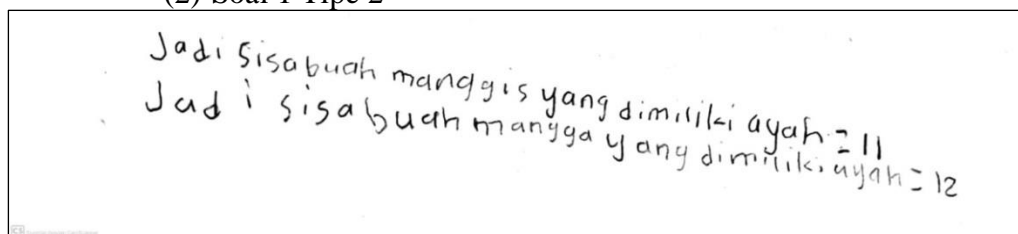 (2) Soal 1 Tipe 2
Jadi sisabuah manggis yang dimiliki ayah = 11
Jadi sisabuah mangga yang dimiliki ayah = 12
CS